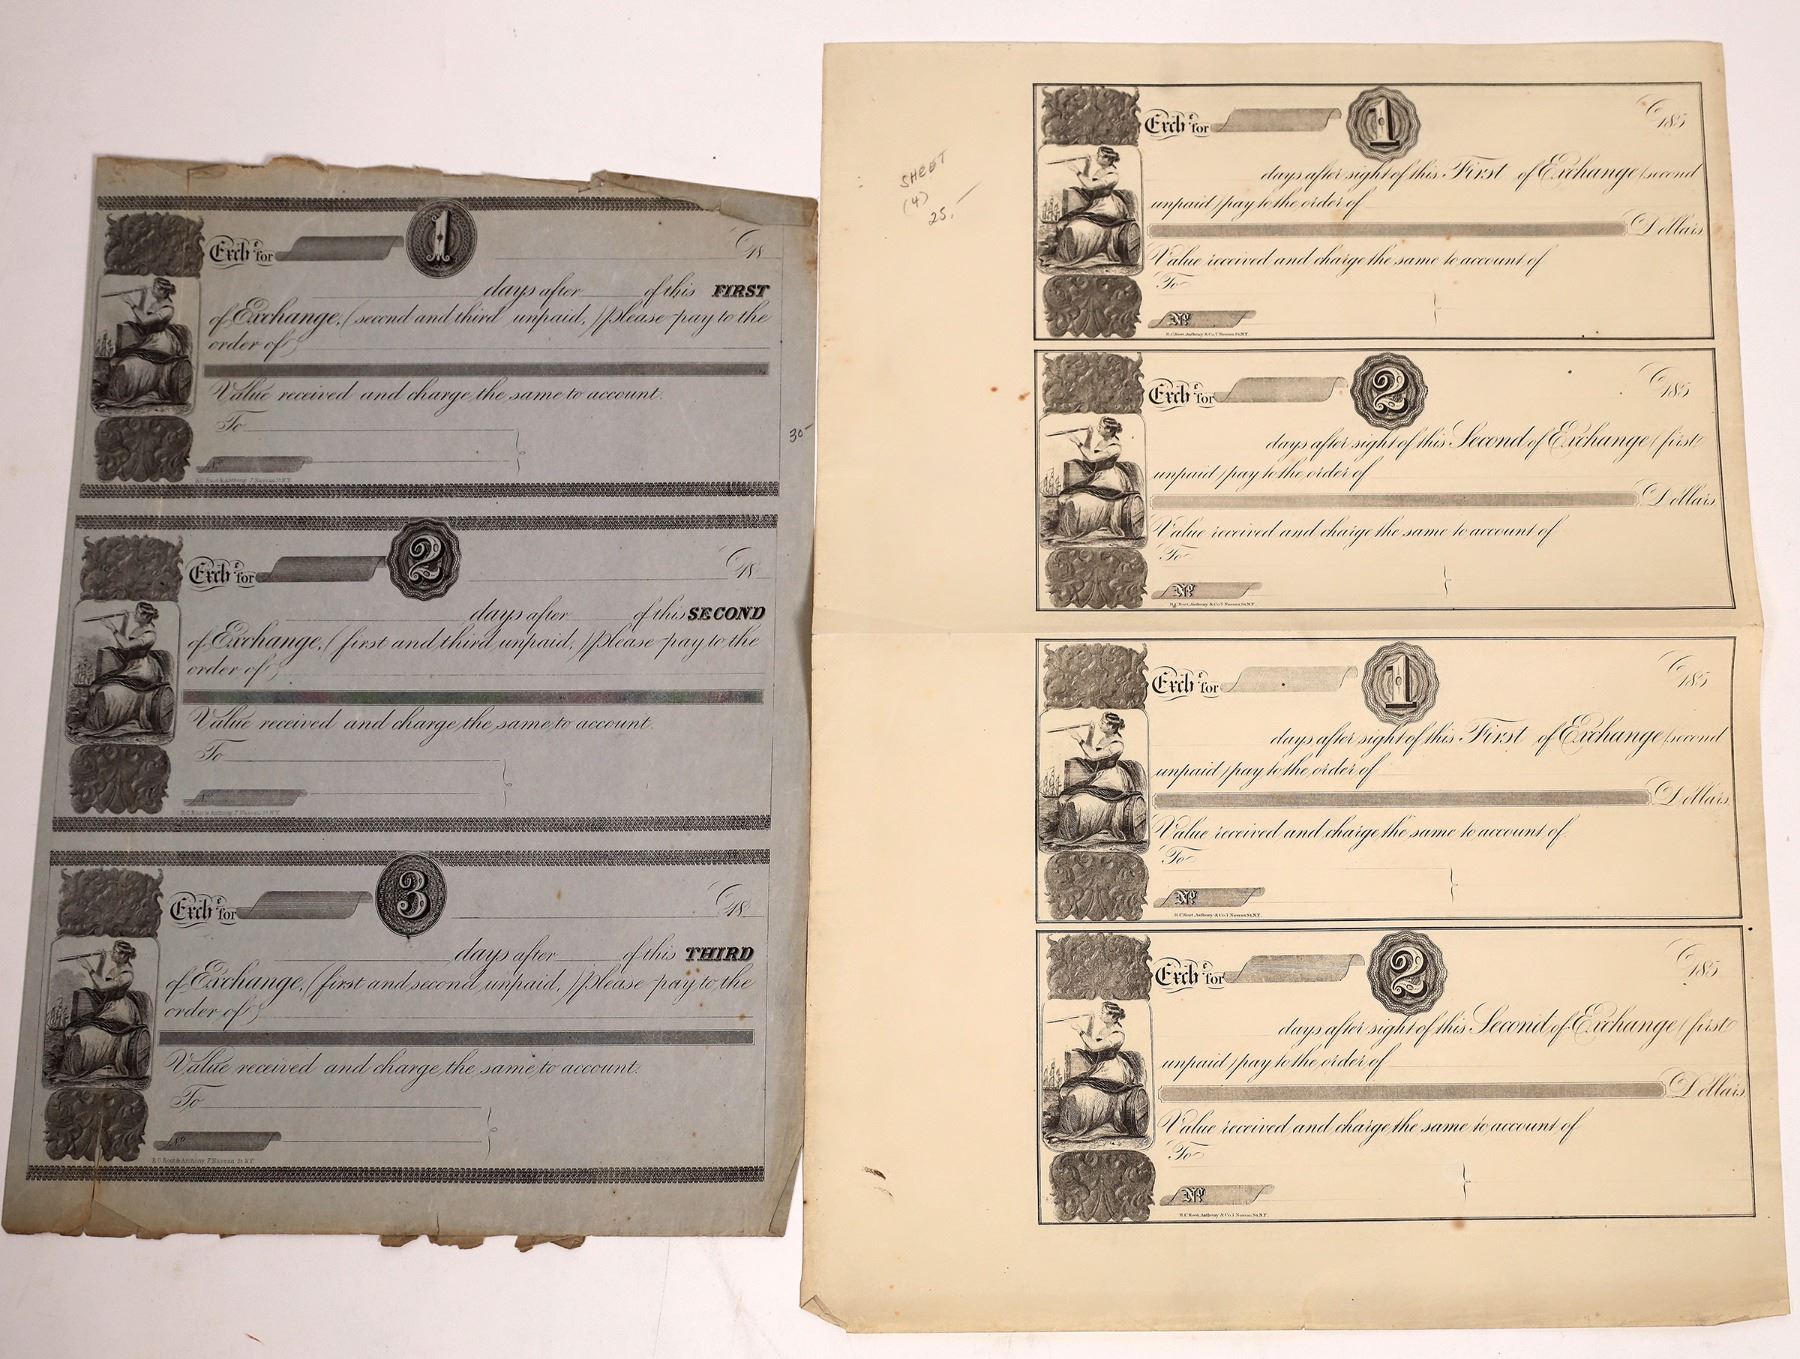 Exch.e for
1
18
days after of this FIRST
of Exchange, (second and third unpaid,) please pay to the
order of
Value received and charge the same to account.
To
No
R.C. Root & Anthony, 7 Nassau St. N.Y.
30-
Exch.e for
2
18
days after of this SECOND
of Exchange, (first and third unpaid,) please pay to the
order of
Value received and charge the same to account.
To
No
R.C. Root & Anthony, 7 Nassau St. N.Y.
Exch.e for
3
18
days after of this THIRD
of Exchange, (first and second unpaid,) please pay to the
order of
Value received and charge the same to account.
To
No
R.C. Root & Anthony, 7 Nassau St. N.Y.
SHEET
(4)
25.-
Exch.e for
1
185
days after sight of this First of Exchange (second
unpaid) pay to the order of
Dollars
Value received and charge the same to account of
To
No.
R.C. Root, Anthony & Co. 7 Nassau St. N.Y.
Exch.e for
2
185
days after sight of this Second of Exchange (first
unpaid) pay to the order of
Dollars
Value received and charge the same to account of
To
No.
R.C. Root, Anthony & Co. 7 Nassau St. N.Y.
Exch.e for
1
185
days after sight of this First of Exchange (second
unpaid) pay to the order of
Dollars
Value received and charge the same to account of
To
No.
R.C. Root, Anthony & Co. 7 Nassau St. N.Y.
Exch.e for
2
185
days after sight of this Second of Exchange (first
unpaid) pay to the order of
Dollars
Value received and charge the same to account of
To
No.
R.C. Root, Anthony & Co. 7 Nassau St. N.Y.